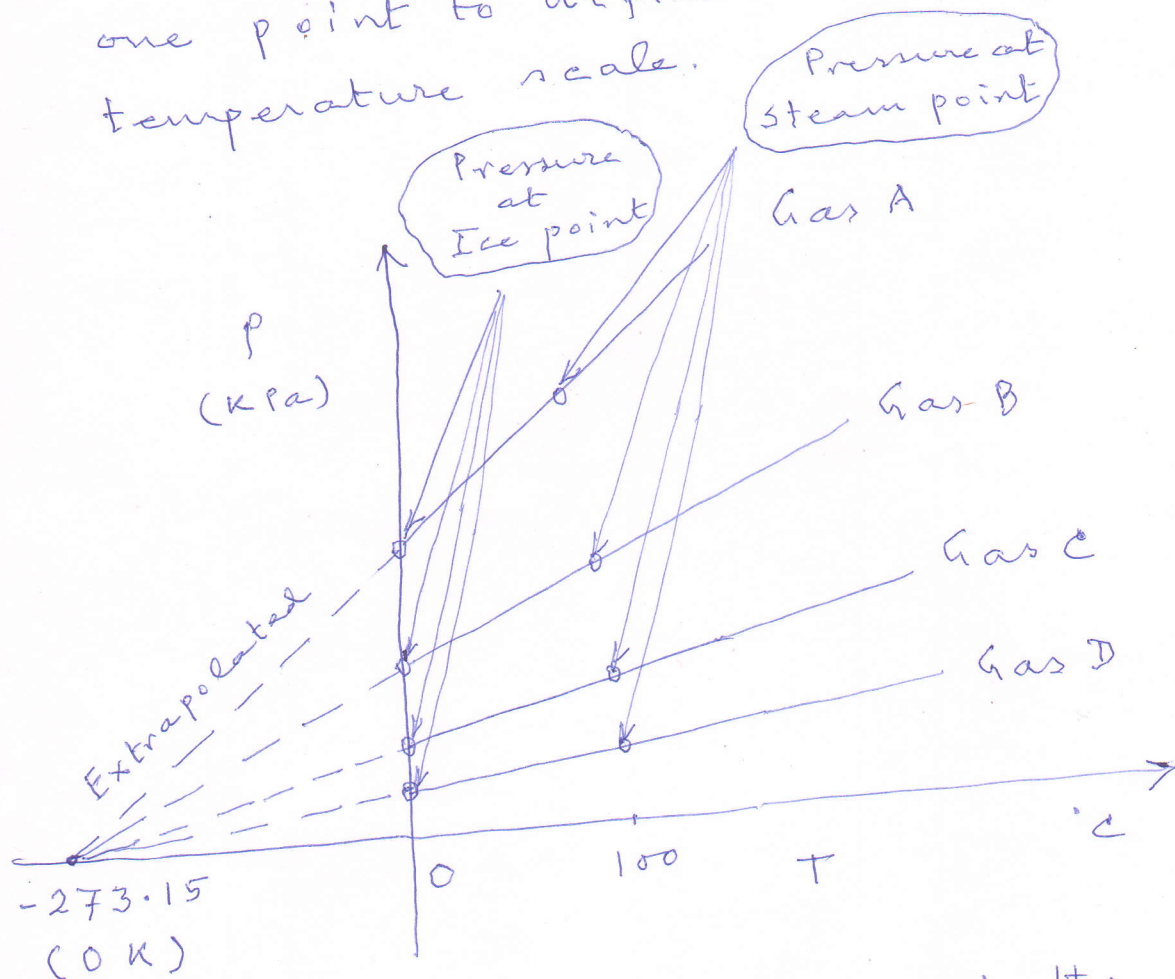 one point to
temperature scale.
Pressure at
steam point
Pressure
at
Ice point
Gas A
P
(KPa)
Gas B
Gas C
Gas D
Extrapolated
°C
0
100
T
-273.15
(0 K)